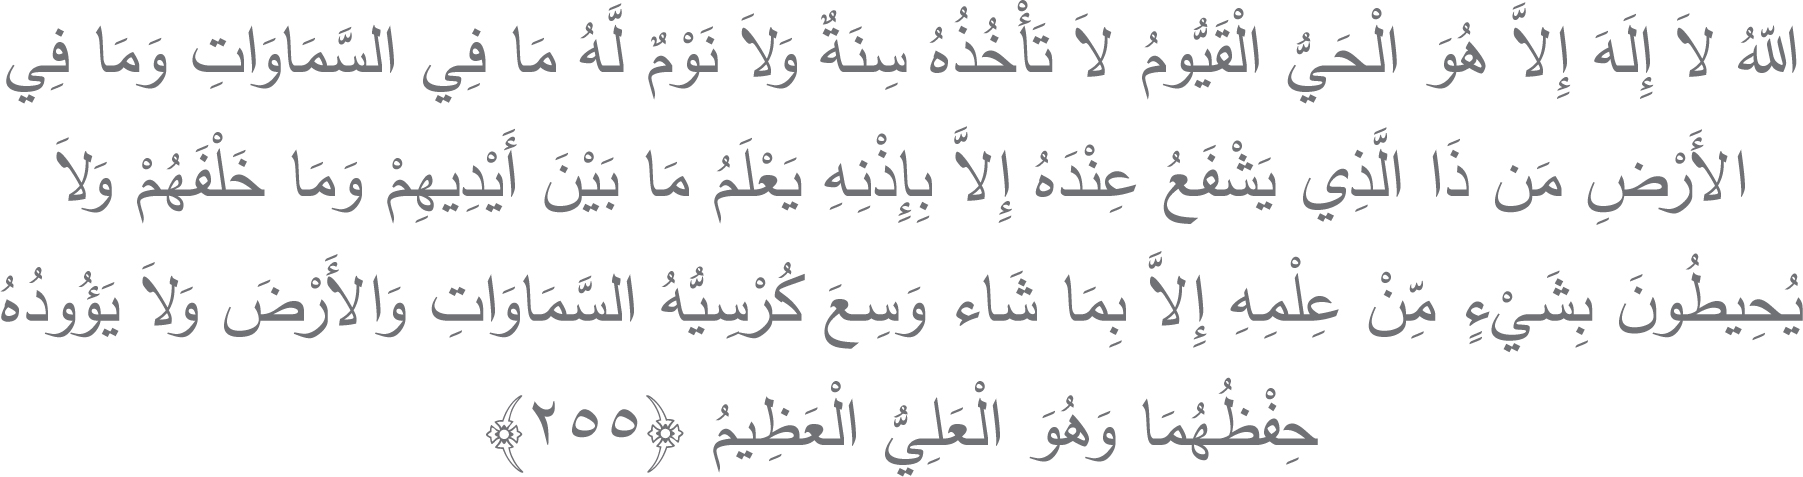 اللّهُ لاَ إِلَهَ إِلاَّ هُوَ الْحَيُّ الْقَيُّومُ لاَ تَأْخُذُهُ سِنَةٌ وَلاَ نَوْمٌ لَّهُ مَا فِي السَّمَاوَاتِ وَمَا فِي
الأَرْضِ مَن ذَا الَّذِي يَشْفَعُ عِنْدَهُ إِلاَّ بِإِذْنِهِ يَعْلَمُ مَا بَيْنَ أَيْدِيهِمْ وَمَا خَلْفَهُمْ وَلاَ
يُحِيطُونَ بِشَيْءٍ مِّنْ عِلْمِهِ إِلاَّ بِمَا شَاء وَسِعَ كُرْسِيُّهُ السَّمَاوَاتِ وَالأَرْضَ وَلاَ يَؤُودُهُ
حِفْظُهُمَا وَهُوَ الْعَلِيُّ الْعَظِيمُ ﴿٢٥٥﴾